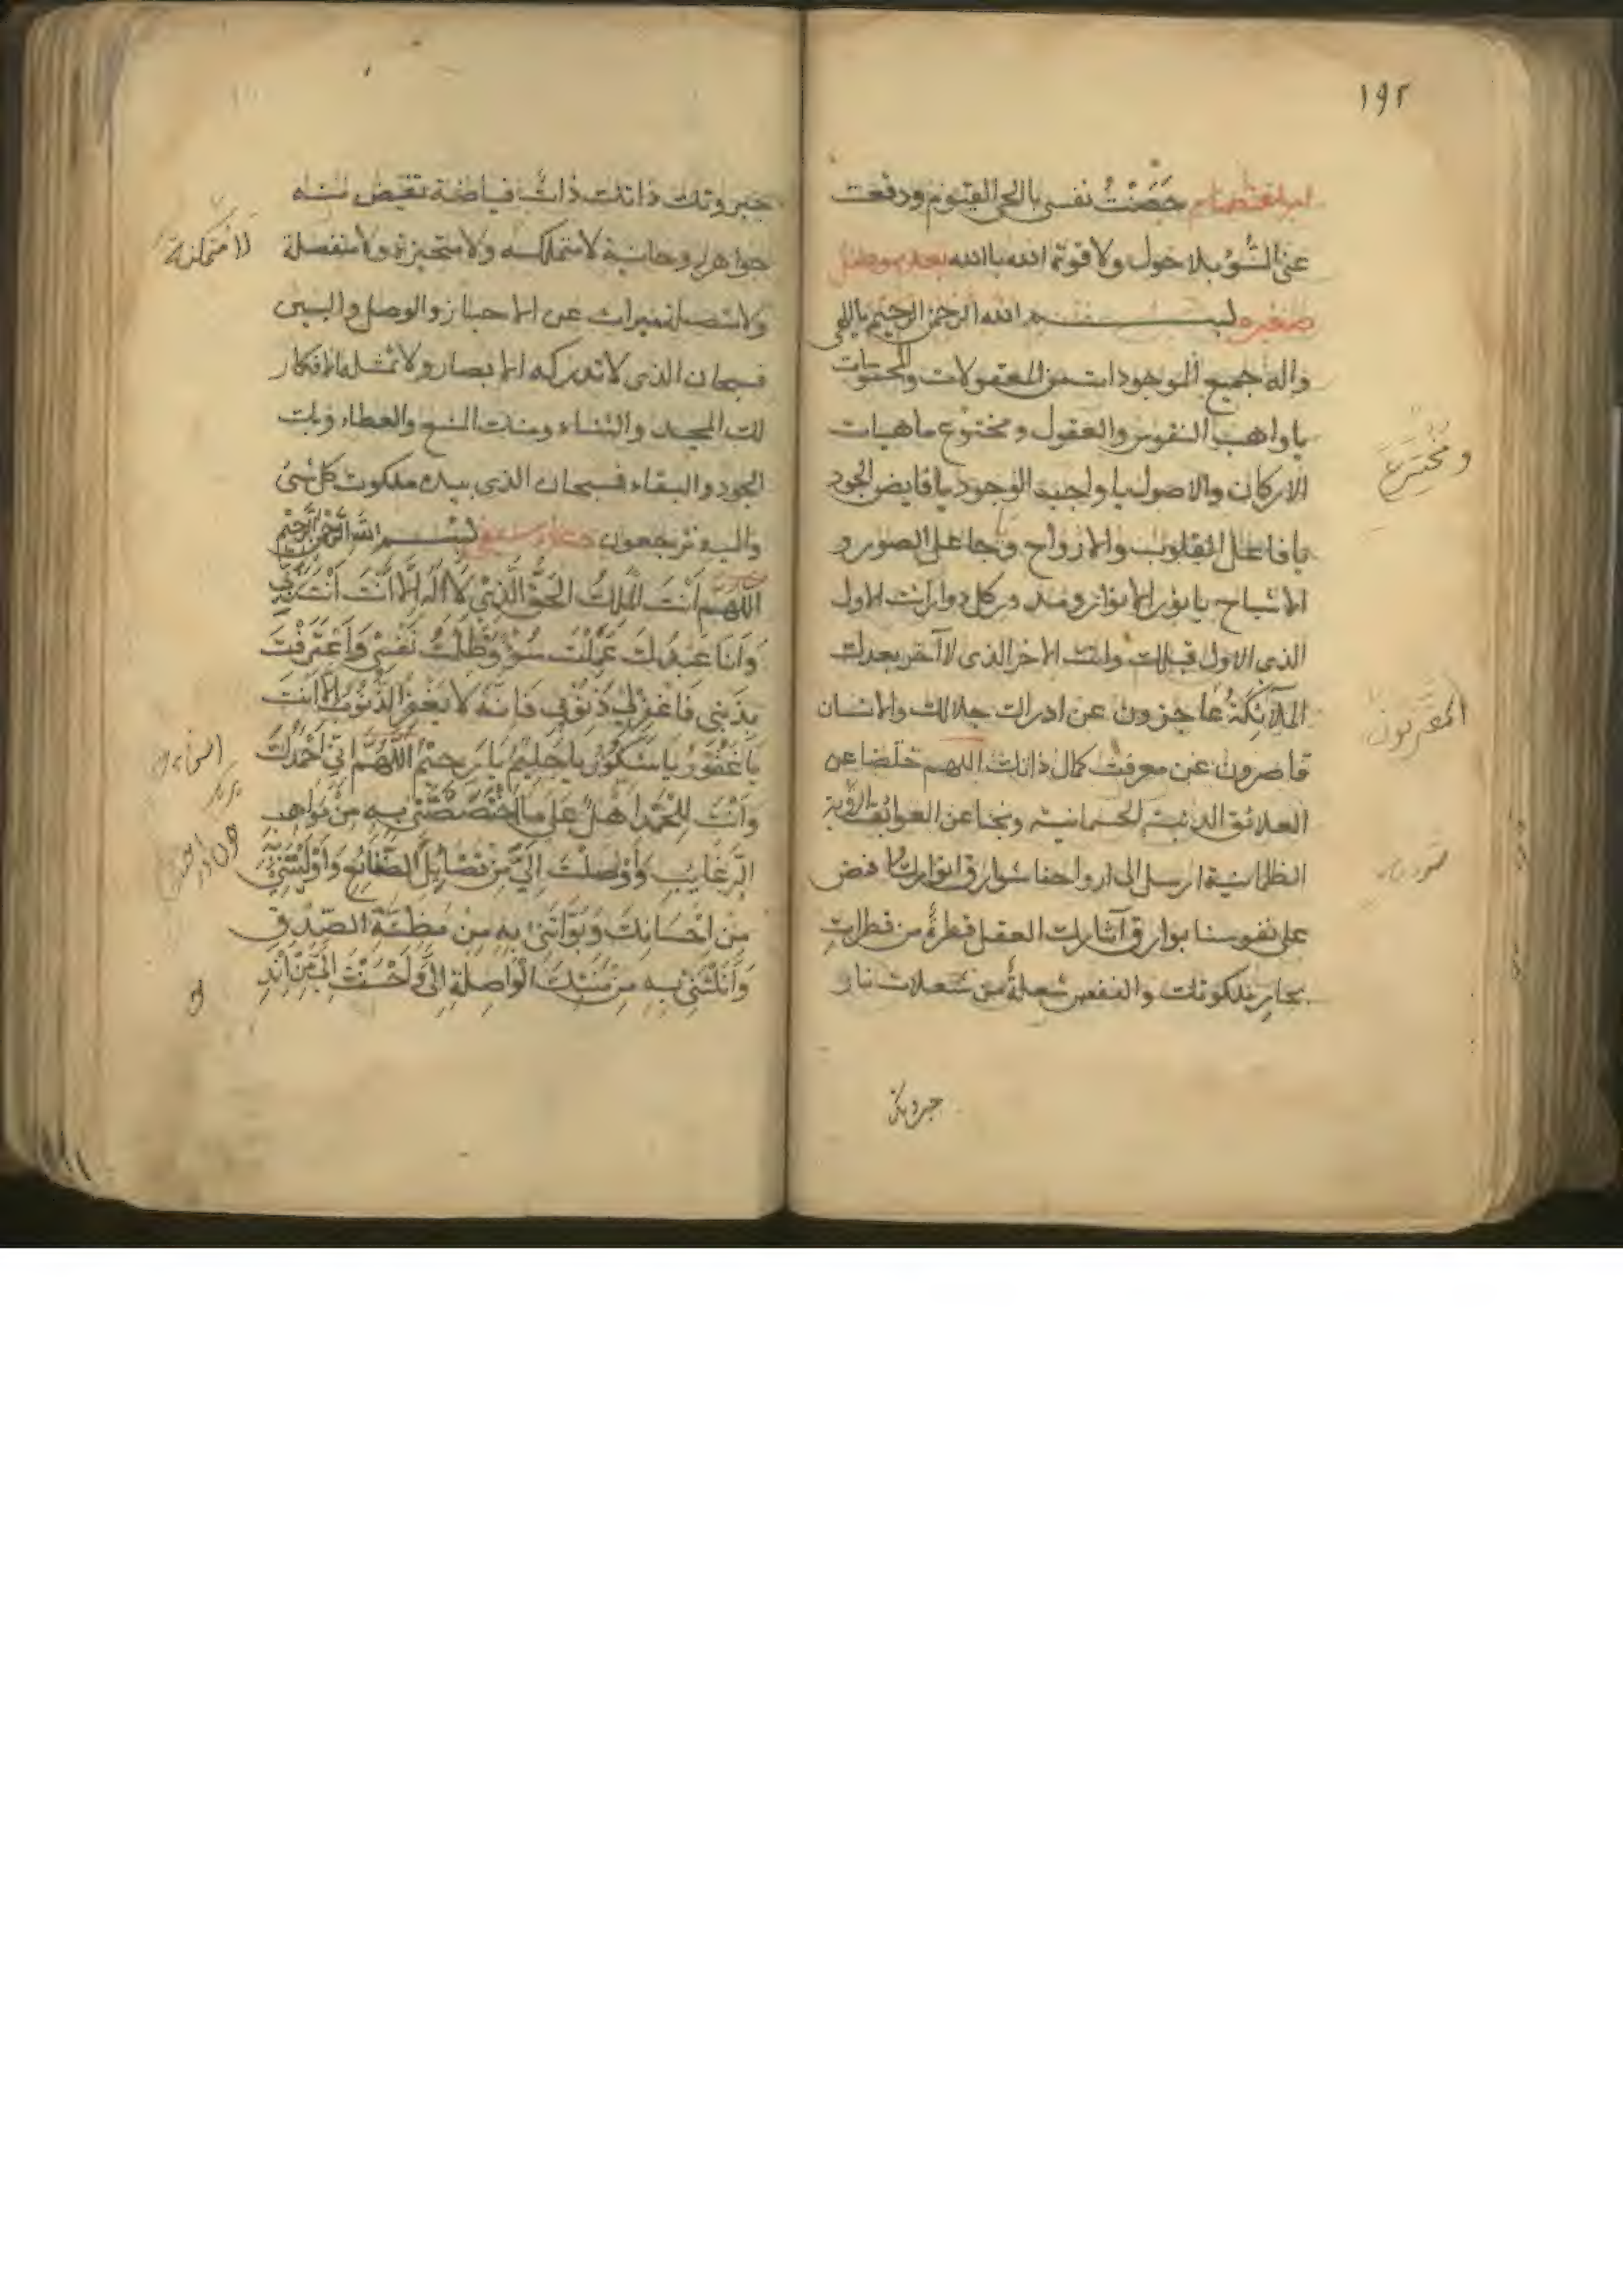 ١٩٢
حَصَنْتُ نفسى بالحى القيوم ودفعت
عنى السُّوْء بلا حول ولا قوة الا بالله
صغير بســــــم الله الرحمن الرحيم يا الهى
واله جميع الموجودات من المعقولات والمحسوسات
يا واهب النفوس والعقول ومخترع ماهيات
الاركان والاصول يا واجب الوجود يا فايض الجود
يا فاعل القلوب والارواح وجاعل الصور و
الاشباح يا نور الانوار ومدبر كل دوار انت الاول
الذى لا اول قبلك وانت الاخر الذى لا آخر بعدك
الملآئكةُ عاجزون عن ادراك جلالك والانسان
قاصرون عن معرفت كمال ذاتك اللهم خلصنا عن
العلائق الدنية الجسمانية ونجنا عن العوائق الردية
الظلمانية ارسل الى ارواحنا شوارق انوارك وافض
على نفوسنا بوارق آثارك العقل قطرةٌ من قطرات
بحار ملكوتك والنفس شعلةٌ من شعلات نار
جبروتك
ومُخْتَرِعَ
المقربون
جبروتك ذاتك ذاتٌ فياضة تفيض منه
جواهر روحانية لا متملكنه ولا متحيزة ولا منفصلة
ولا متصلة مبرات عن الاحياز والوصل والبين
فسبحان الذى لا تدركه الابصار ولا تمثله الافكار
لك المجد والثناء ومنك المنع والعطاء وبك
الجود والبقاء فسبحان الذى بيده ملكوت كل شئ
واليه ترجعون بســـم الله الرحمن الرحيم
اَللّٰهُمَّ اَنْتَ الْمَلِكُ الْحَقُّ الَّذِىْ لَا اِلٰهَ اِلَّا اَنْتَ اَنْتَ رَبِّى
وَاَنَا عَبْدُكَ عَمِلْتُ سُوْءً وَظَلَمْتُ نَفْسِىْ وَاعْتَرَفْتُ
بِذَنْبِى فَاغْفِرْ لِىْ ذُنُوْبِى فَاِنَّهُ لَا يَغْفِرُ الذُّنُوْبَ اِلَّا اَنْتَ
يَا غَفُوْرُ يَا شَكُوْرُ يا حَلِيْمُ يَا رَحِيْمُ اَللّٰهُمَّ اِنِّى اَحْمَدُكَ
وَاَنْتَ لِلْحَمْدِ اَهْلٌ عَلٰى مَا اخْتَصَصْتَنِىْ بِهِ مِنْ مَوَاهِبِ
الرَّغَايِبِ وَاَوْصَلْتَ اِلَىَّ مِنْ فَضَايِلِ الصَّنَائِعِ وَاَوْلَيْتَنِىْ بِهِ
مِنْ اِحْسَانِكَ وَبَوَّاْتَنِىْ بِهِ مِنْ مَظَنَّةِ الصِّدْقِ
وَاَنَلْتَنِىْ بِهِ مِنْ مِنَنِكَ الْوَاصِلَةِ اِلَىَّ وَاَحْسَنْتَ اِلَىَّ مِنْ
لا متمكنة